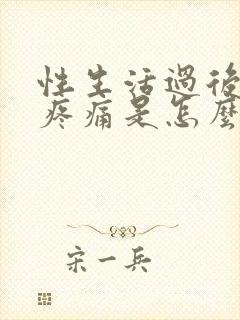 性生活過後
疼痛是怎麼
宋一兵